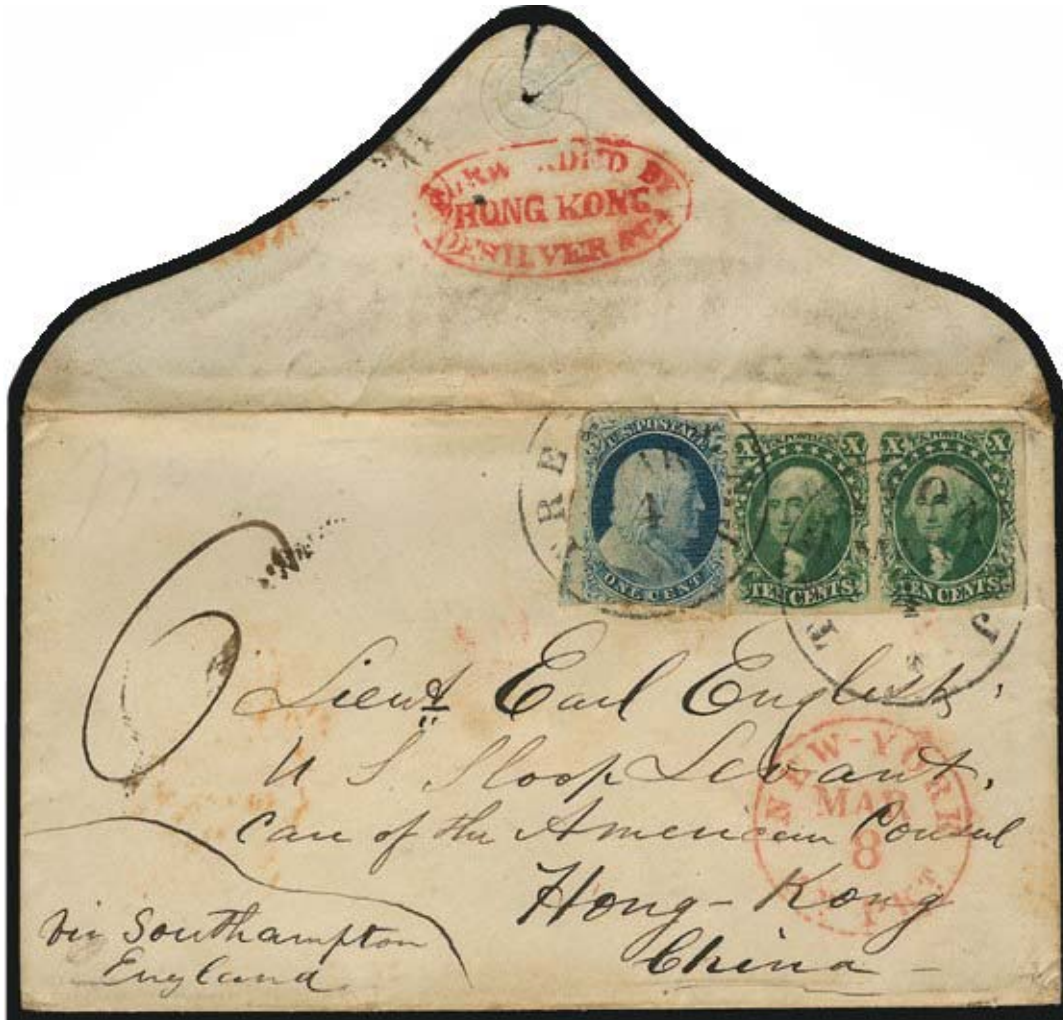 HONG KONG
DESILVER & Co
U.S. POSTAGE
ONE CENT
4
X U.S. POSTAGE X
TEN CENTS
X U.S. POSTAGE X
TEN CENTS
6
Lieut Earl English,
U S Sloop Levant,
Care of the American Consul
Hong-Kong
China -
NEW-YORK
MAR
8
PKT
via Southampton
England